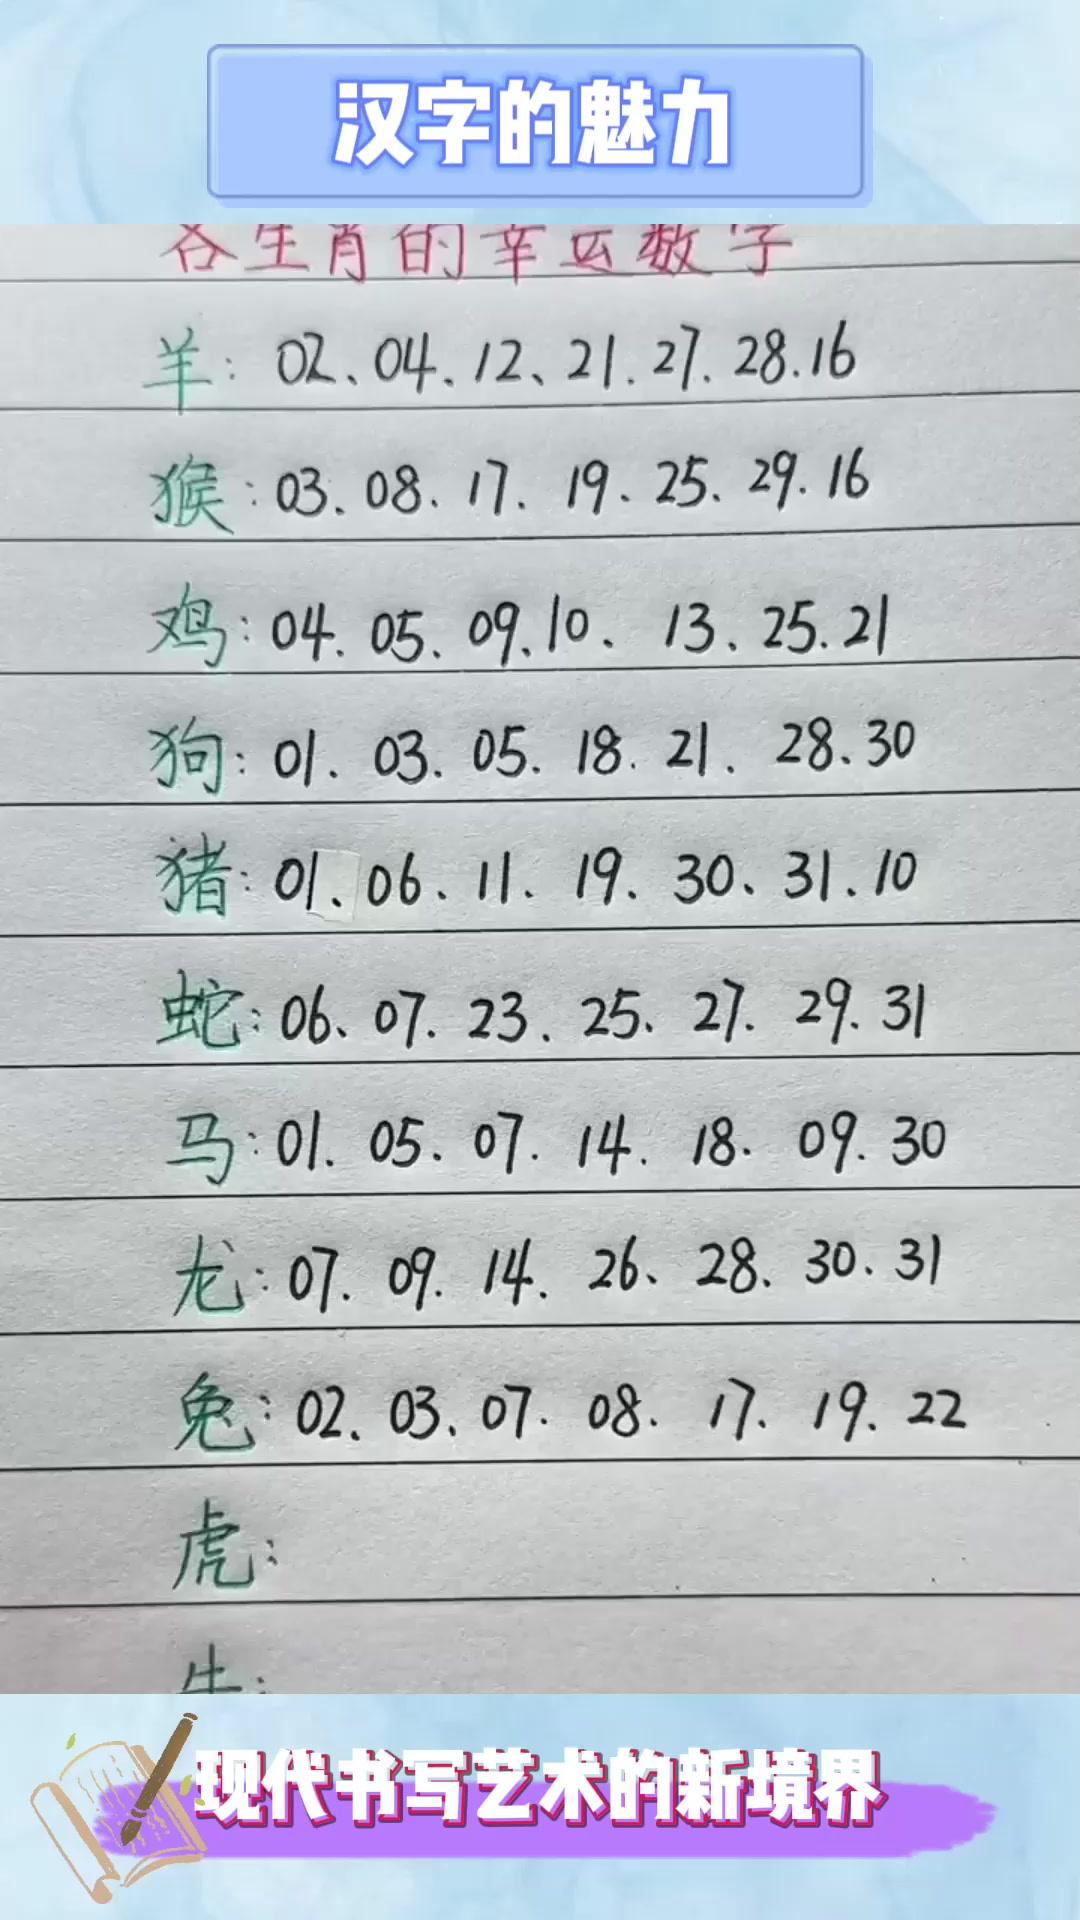 汉字的魅力
各生肖的幸运数字
羊: 02、04.12、21.27.28.16
猴:03.08.17.19.25.29.16
鸡:04.05.09.10、13.25.21
狗:01.03.05.18.21.28.30
猪:01、06.11.19.30、31.10
蛇:06、07.23.25.27.29.31
马:01.05.07.14.18.09.30
龙:07.09.14.26、28.30.31
兔:02.03.07.08.17.19.22
虎:
牛:
现代书写艺术的新境界